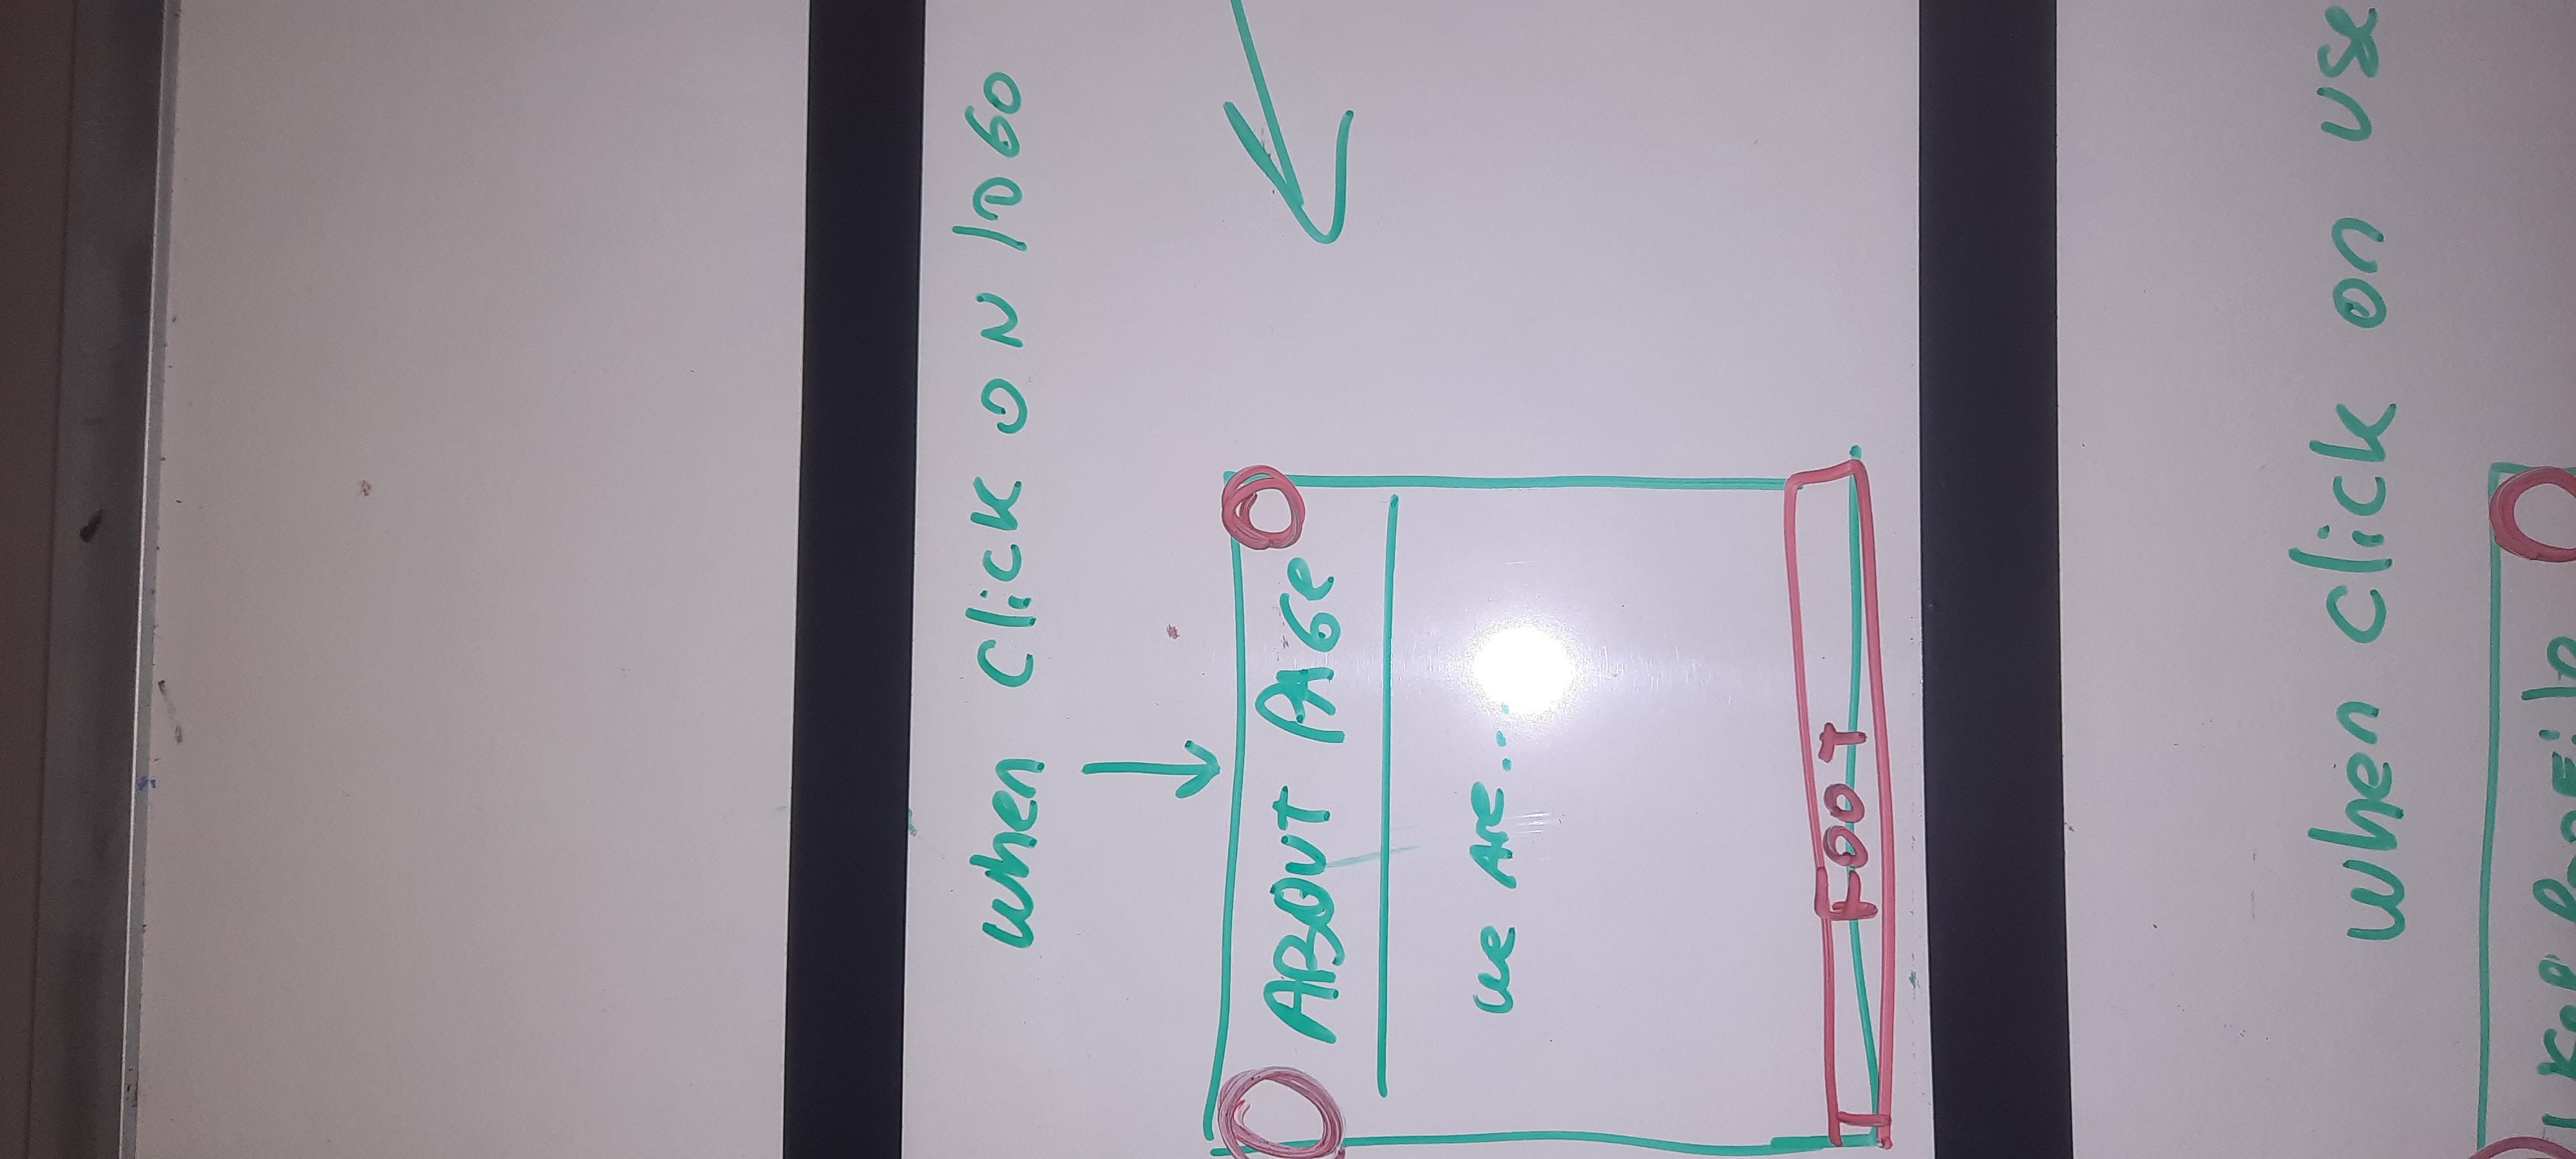 when click ON lOGO
ABOUT PAGe
we Are...
FOOT
when click on use
User Profile